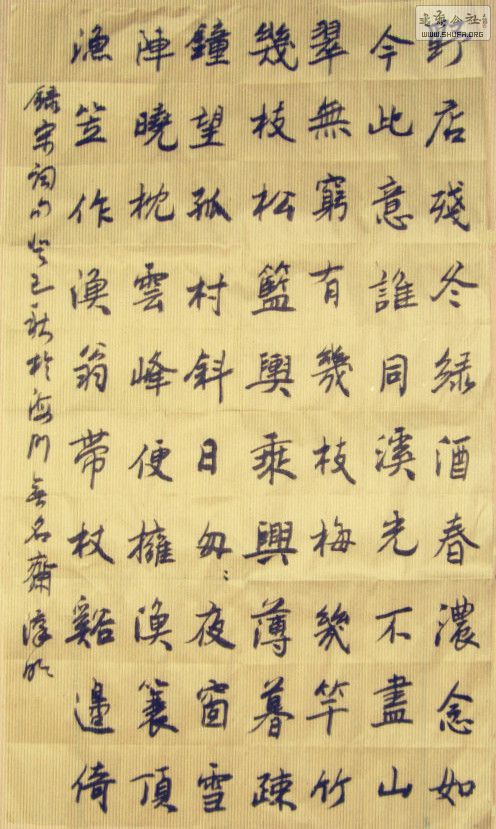 野店殘冬綠酒春濃念如
今此意誰同溪光不盡山
翠無窮有幾枝梅幾竿竹
幾枝松籃輿乘興薄暮疎
鐘望孤村斜日匆〻夜窗雪
陣曉枕雲峰便擁漁蓑頂
漁笠作漁翁帶杖谿邊倚
錄宋詞句癸巳秋於海門無名齋
書法公社
WWW.SHUFA.ORG